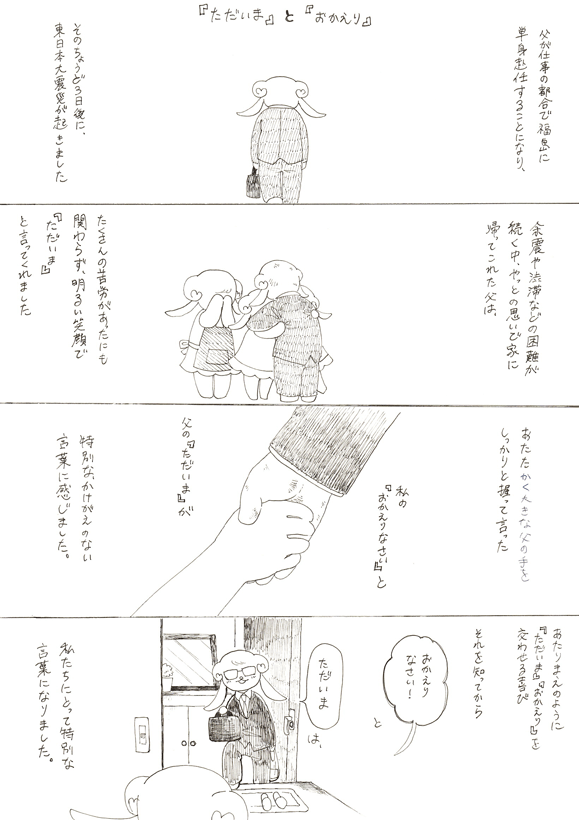 『ただいま』と『おかえり』
父が仕事の都合で福島に
単身赴任することになり、
そのちょうど3日後に、
東日本大震災が起きました
余震や渋滞などの困難が
続く中、やっとの思いで家に
帰ってこれた父は、
たくさんの苦労があったにも
関わらず、明るい笑顔で
『ただいま』
と言ってくれました
あたたかく大きな父の手を
しっかりと握って言った
私の
『おかえりなさい』と
父の『ただいま』が
特別な、かけがえのない
言葉に感じました。
あたりまえのように
『ただいま』『おかえり』を
交わせる喜び
それを知ってから
おかえり
なさい！
と
ただいま
は、
私たちにとって特別な
言葉になりました。